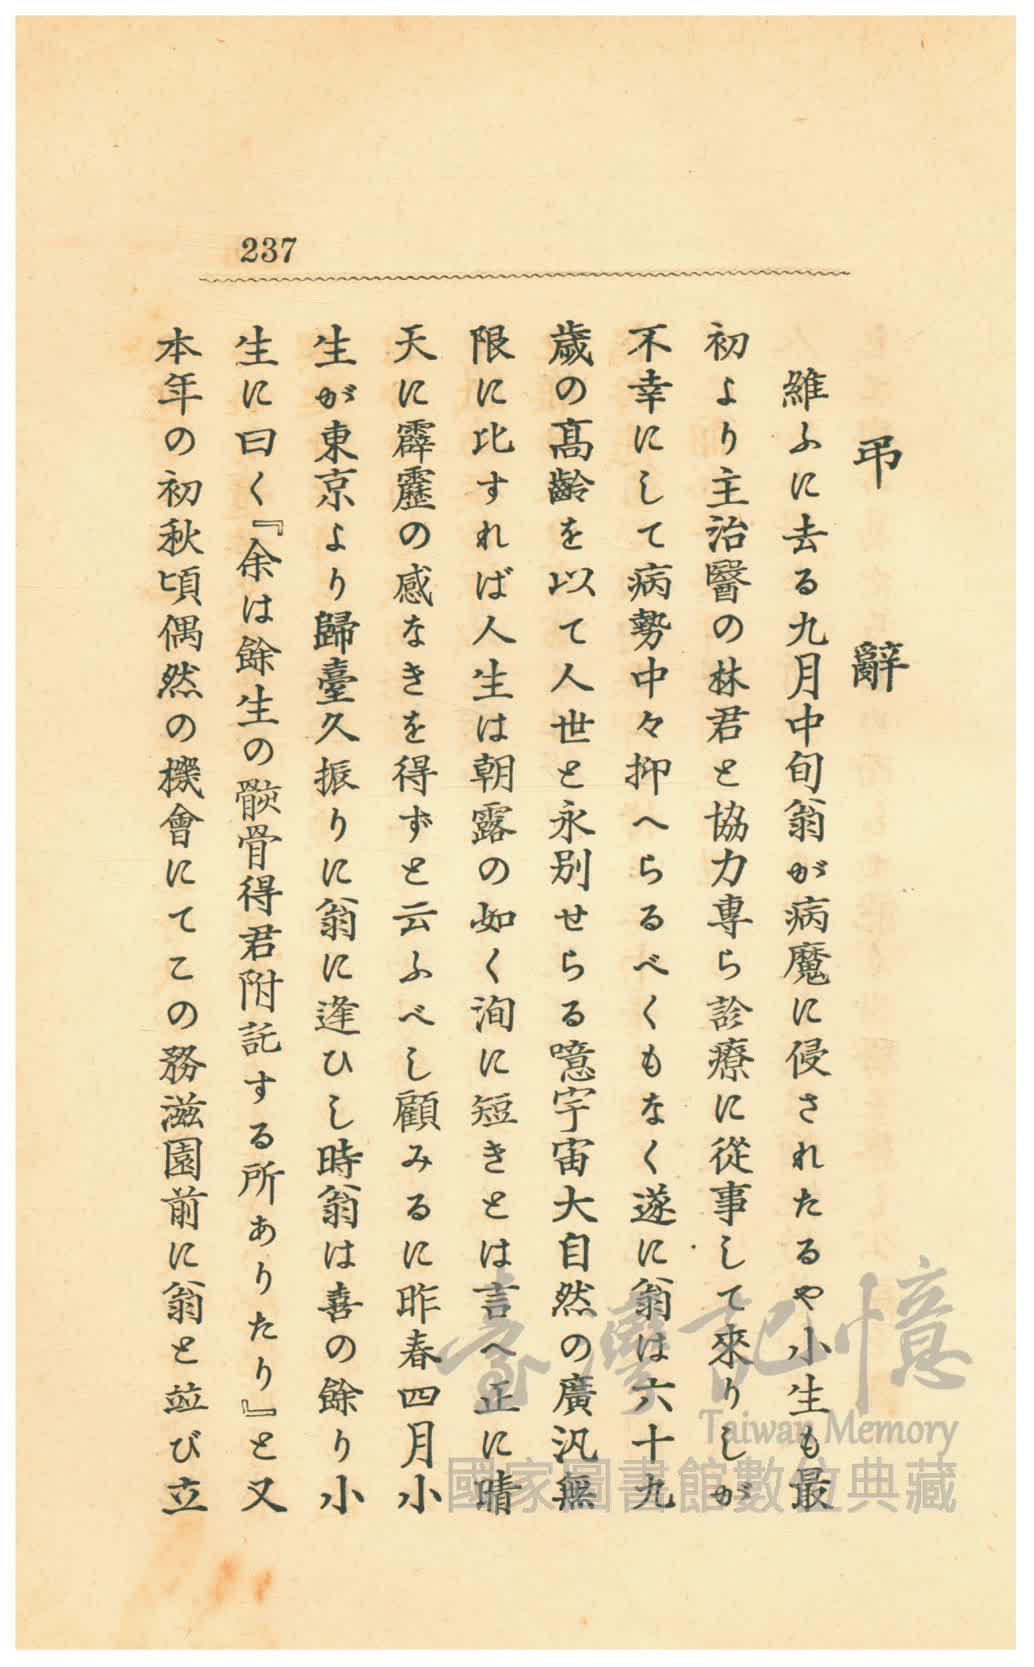 237
弔辭
維ふに去る九月中旬翁が病魔に侵されたるや小生も最
初より主治醫の林君と協力專ら診療に從事して來りしが
不幸にして病勢中々抑へらるべくもなく遂に翁は六十九
歲の高齡を以て人世と永別せらる噫宇宙大自然の廣汎無
限に比すれば人生は朝露の如く洵に短きとは言へ正に晴
天に霹靂の感なきを得ずと云ふべし顧みるに昨春四月小
生が東京より歸臺久振りに翁に逢ひし時翁は喜の餘り小
生に曰く『余は餘生の骸骨得君附託する所ありたり』と又
本年の初秋頃偶然の機會にてこの務滋園前に翁と竝び立
臺灣記憶
Taiwan Memory
國家圖書館數位典藏